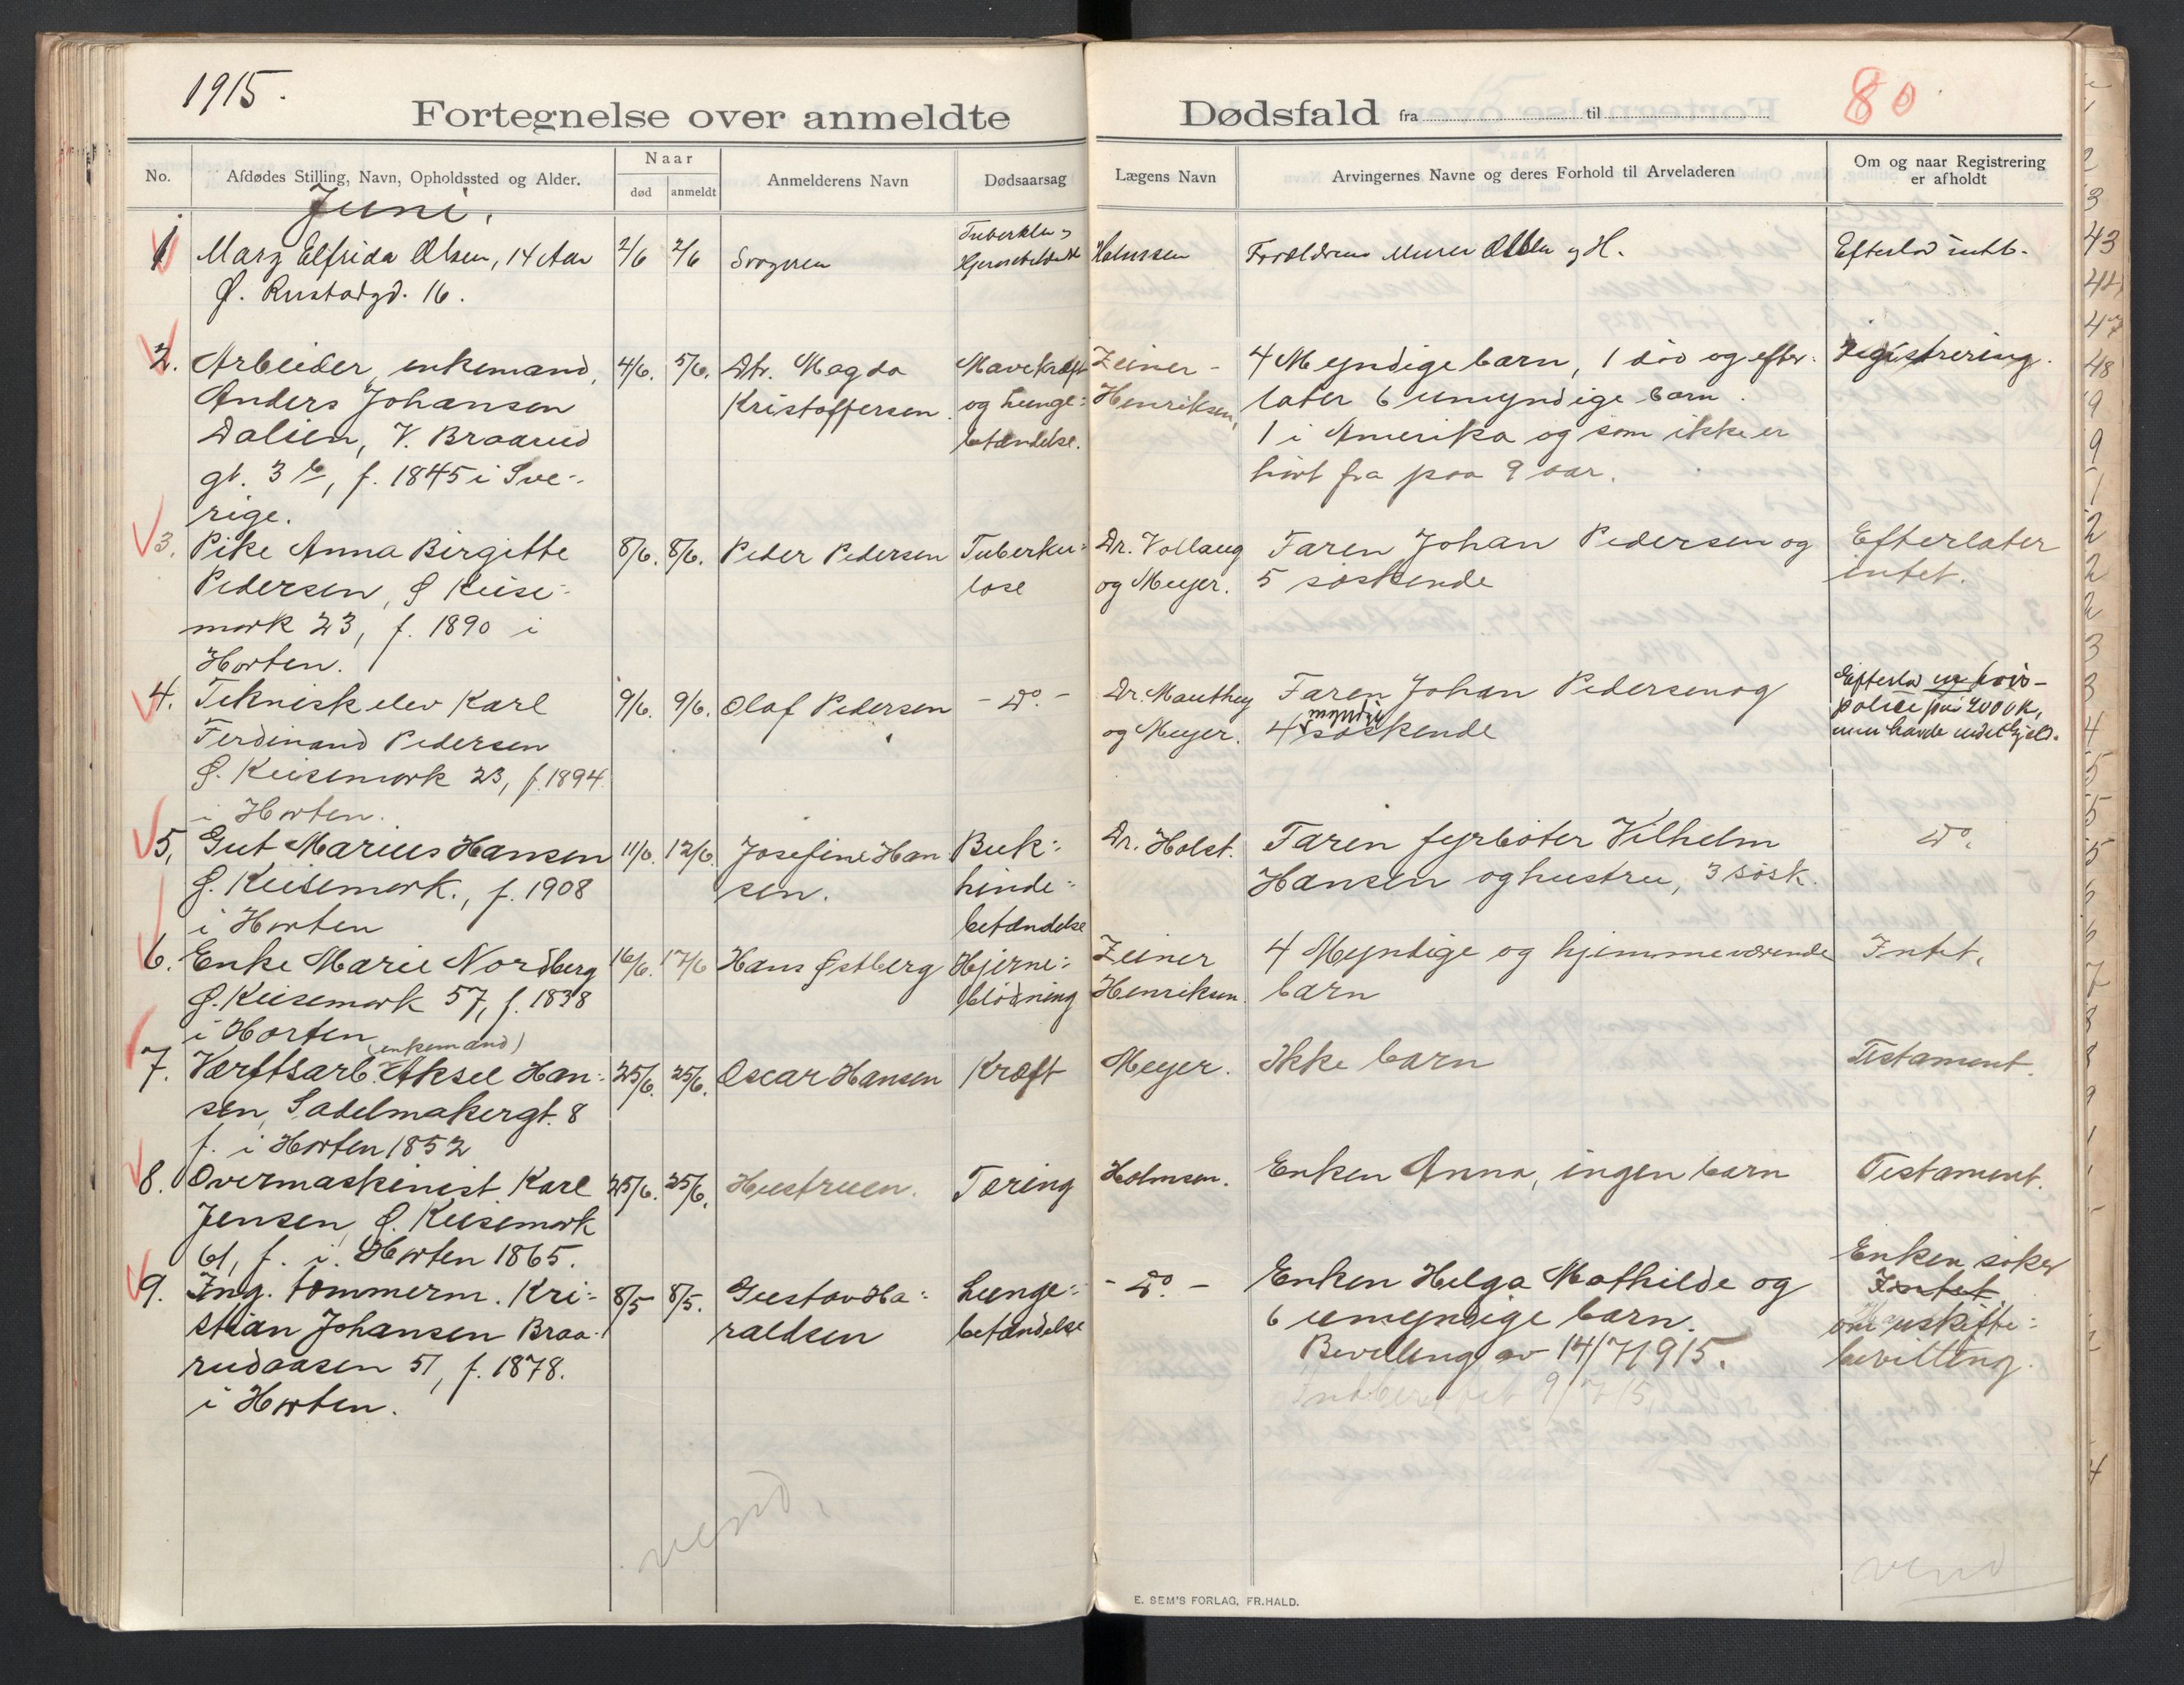 1915.
80
Fortegnelse over anmeldte Dødsfald fra til
No.
Afdødes Stilling, Navn, Opholdssted og Alder.
Naar
død
anmeldt
Anmelderens Navn
Dødsaarsag
Lægens Navn
Arvingernes Navne og deres Forhold til Arveladeren
Om og naar Registrering
er afholdt
Juni.
1 Mary Elfrida Olsen, 14 Aar
Ø. Rustadgd. 16.
2/6 2/6
Svogeren
Holmsen
Forældrene Murer Olsen og H.
Efterlod intet.
2. Arbeider, enkemand,
Anders Johansen
Dalien, V. Braarud
gt. 3 b, f. 1845 i Sve-
rige.
4/6. 5/6.
Dtr. Magda
Kristoffersen.
Mavekræft
og Lunge-
betændelse.
Zeiner-
Henriksen,
4 Myndige barn, 1 død og efter-
later 6 umyndige barn.
1 i Amerika og som ikke er
hørt fra paa 9 aar.
Registrering.
3. Pike Anna Birgitte
Pedersen, Ø Keise-
mark 23, f. 1890 i
Horten.
8/6. 8/6.
Peder Pedersen
Tuberku-
lose
Dr. Vollaug
og Meyer.
Faren Johan Pedersen og
5 søskende
Efterlater
intet.
4. Teknisk elev Karl
Ferdinand Pedersen
Ø. Keisemark 23, f. 1894
i Horten.
9/6. 9/6.
Olaf Pedersen
- Do. -
Dr. Mauthey
og Meyer.
Faren Johan Pedersen og
myndige
4 søskende
Efterlod
police på 2000 K,
men havde endel Gjeld.
5. Gut Marius Hansen
Ø. Keisemark., f. 1908
i Horten
11/6. 12/6.
Josefine Han
sen.
Buk-
hinde-
betændelse
Dr. Holst.
Faren fyrbøter Vilhelm
Hansen og hustru, 3 søsk.
Do.
6. Enke Marie Nordberg
Ø. Keisemark 57, f. 1838
i Horten
16/6. 17/6
Hans Østberg
Hjerne-
blødning
Zeiner
Henriksen.
4 Myndige og hjemmeværende
barn
Intet.
(enkemand)
7. Værftsarb. Aksel Han-
sen, Sadelmakergt. 8
f. i Horten 1852
25/6. 25/6.
Oscar Hansen
Kræft
Meyer.
Ikke barn
Testament.
8. Overmaskinist Karl
Jensen, Ø. Keisemark
61, f. i. Horten 1865.
25/6. 25/6.
Hustruen.
Tæring
Holmsen.
Enken Anna, ingen barn
Testament.
9. Ing. tømmerm. Kri-
stian Johansen Braa-
rudaasen 51, f. 1878.
i Horten.
8/5 8/5.
Gustav Ha-
raldsen
Lunge-
betændelse
- Do. -
Enken Helga Mathilde og
6 umyndige barn.
Bevilling av 14/7 1915.
Indberettet 9/7 15.
Enken søker
Intet.
om uskifte-
bevilling.
vend.
vend
E. SEM'S FORLAG, FR.HALD.